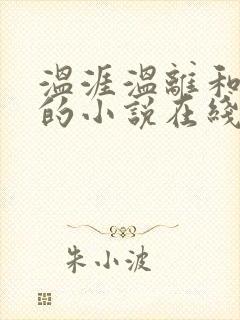 温涯温離和
的小说在綫
朱小波